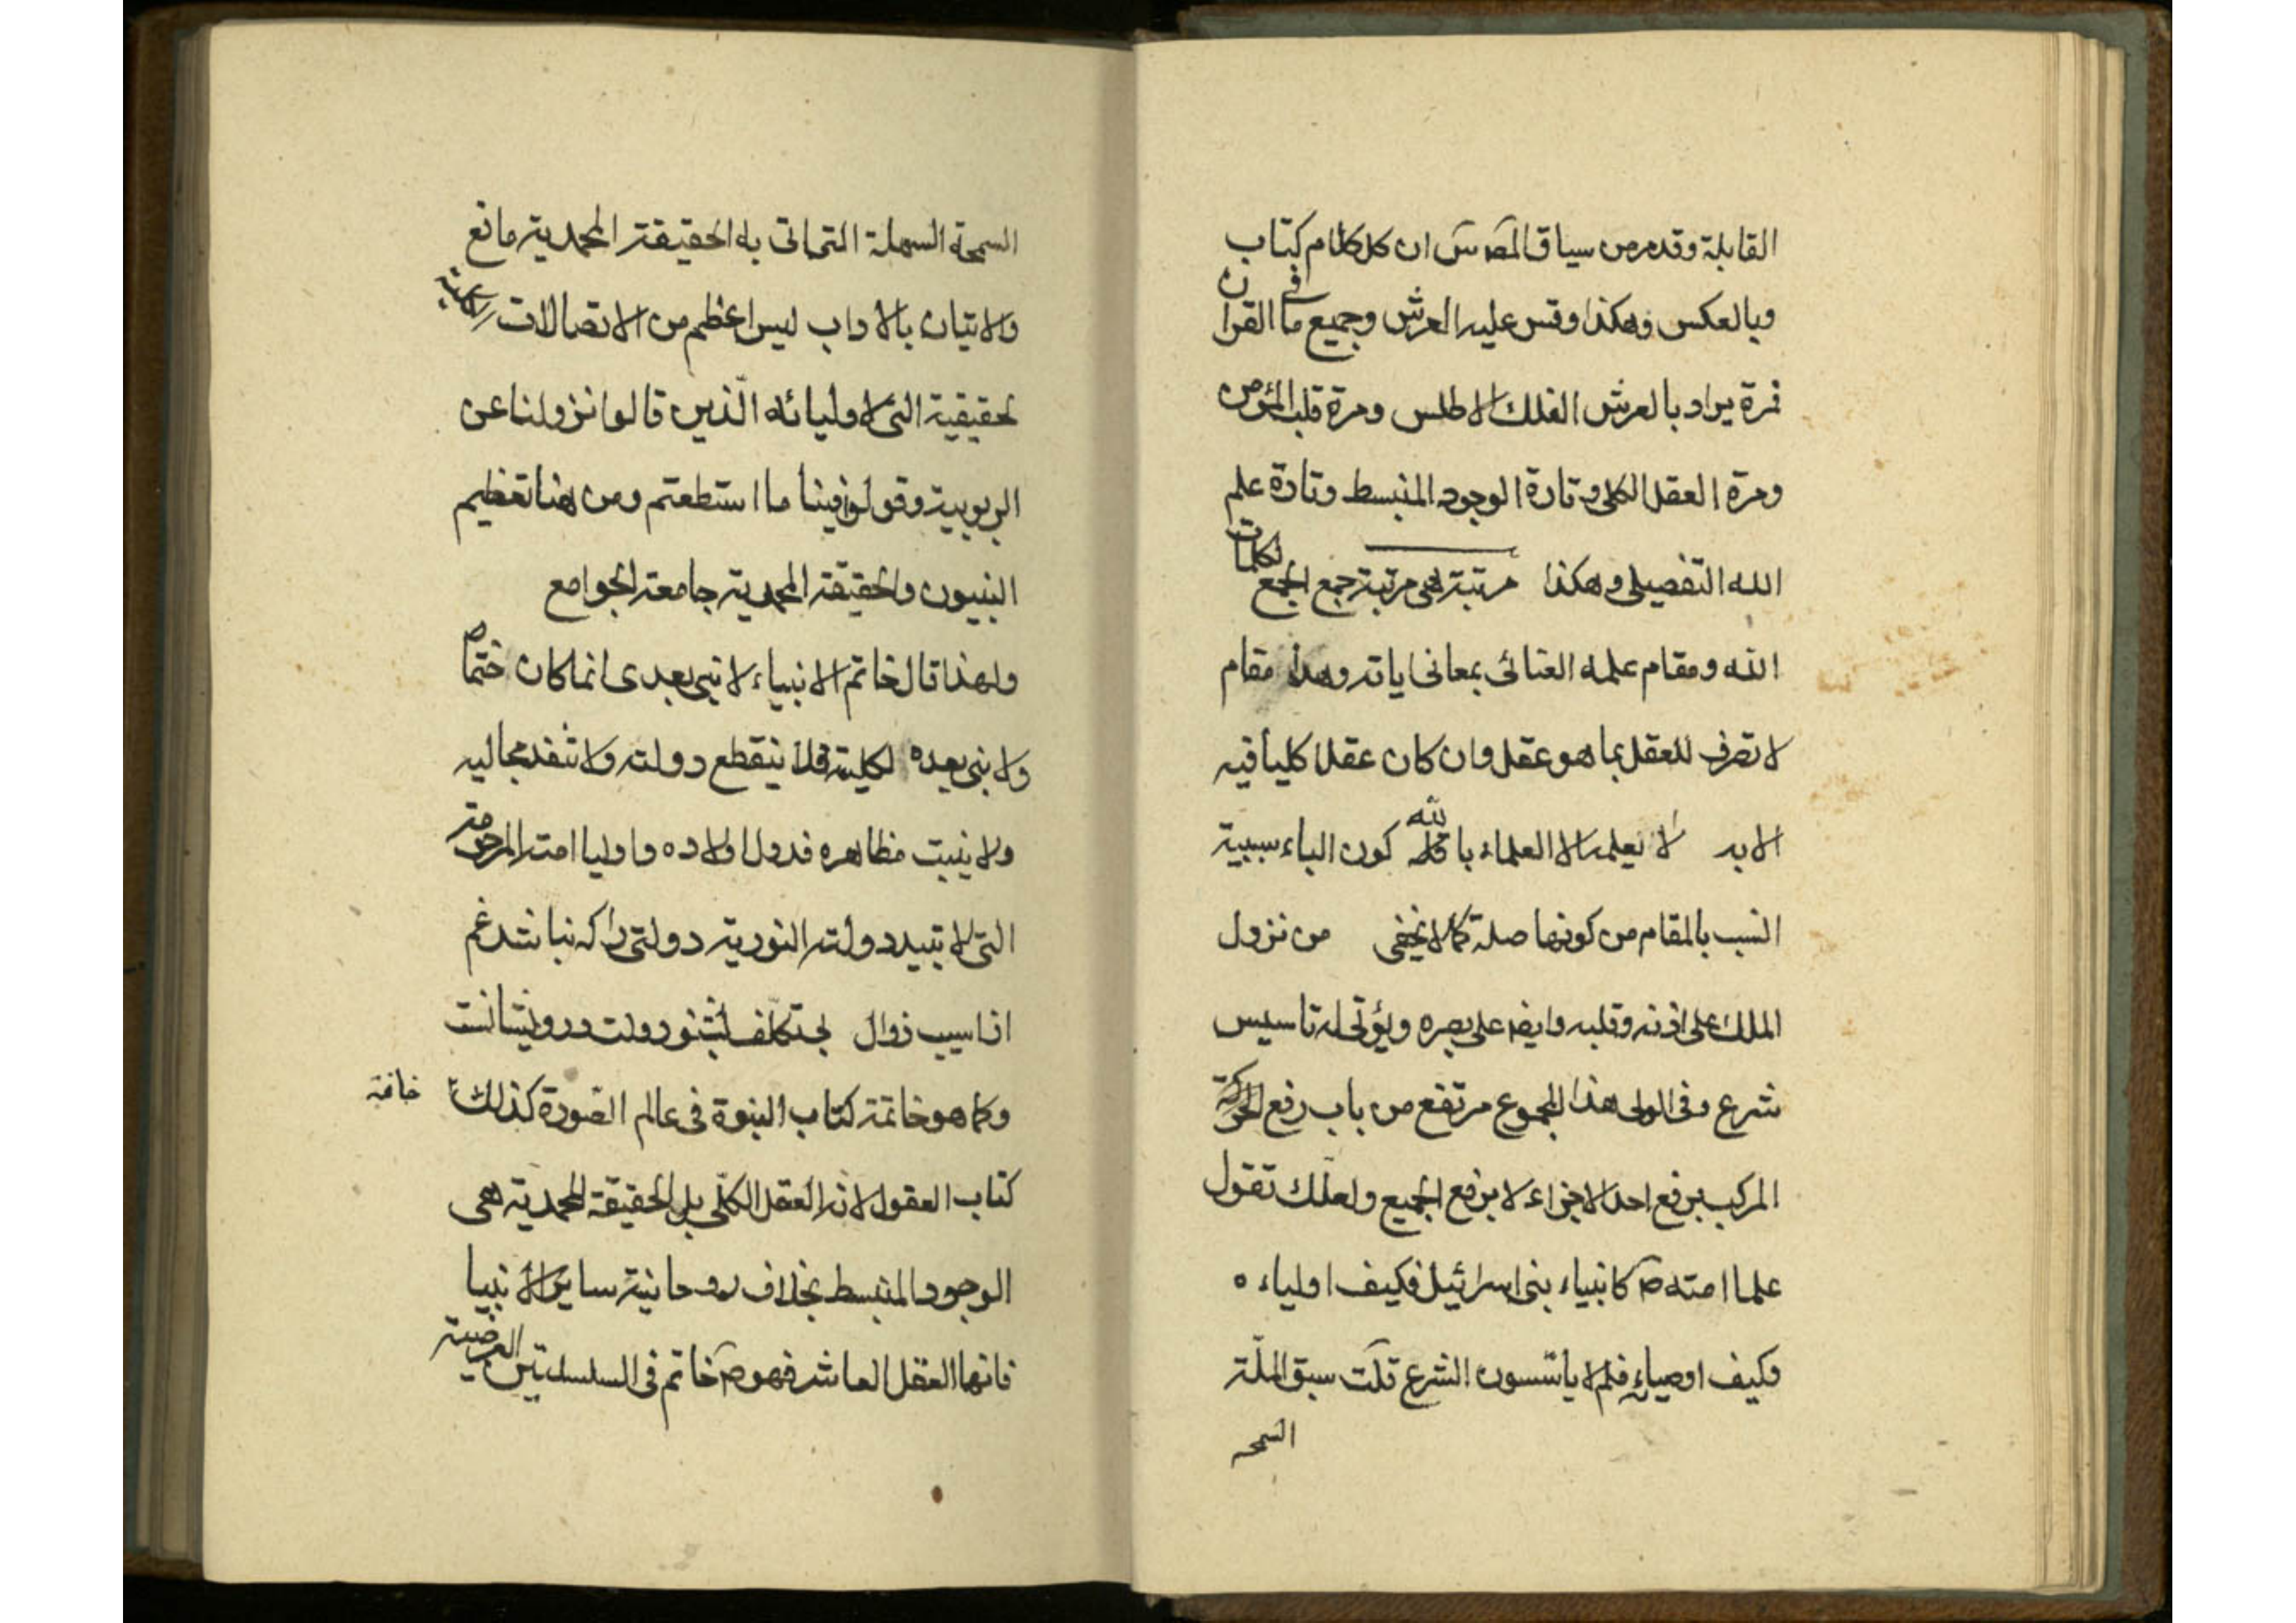 القابلة وقد مر من سياق المص س ان كل كلام كتاب
وبالعكس وهكذا وقس عليه العرش وجميع ما فى القران
فمرة يراد بالعرش الفلك الاطلس ومرة قلب المؤمن
ومرة العقل الكلى وتارة الوجود المنبسط وتارة علم
الله التفصيلى وهكذا مرتبة هى مرتبة جمع الجمع لكلمات
الله ومقام علمه العنائى بمعانى اياته وهذا مقام
لا تصرف للعقل بما هو عقل وان كان عقلا كليا فيه
الابه لا يعلمه الا العلماء بالله كون الباء سببية
انسب بالمقام من كونها صلة كما لا يخفى من نزول
الملك على اذنه وقلبه وايضا على بصره ويؤتى له تاسيس
شرع وفى الولى هذا المجموع مرتفع من باب رفع
المركب برفع احد الاجزاء لا برفع الجميع ولعلك تقول
علما امته ص كانبياء بنى اسرائيل فكيف اولياءه
وكيف اوصيائه فلم لا ياسسون الشرع قلت سبق الملة
السمحه
السمحة السهلة التى اتى به الحقيقة المحمدية مانع
والاتيان بالاداب ليس اعظم من الاتصالات
لحقيقية التى لاوليائه الذين قالوا نزولنا عن
الربوبية وقولوا فينا ما استطعتم ومن هنا تعظيم
النبيون والحقيقة المحمدية جامعة الجوامع
ولهذا قال خاتم الانبياء لا نبى بعدى انما كان ص ختما
ولا نبى بعده لكليته فلا ينقطع دولته ولا تنفد مجاليه
ولا يبيت مظاهره فدول اولاده واوليا امته المرحومة
التى لا تبيد دولته النورية دولتى را كه نباشد غم
از اسيب زوال بى تكلف بشنو دولت درويشانست
وكما هو خاتمة كتاب النبوة فى عالم الصورة كذلك خاتمة
كتاب العقول لانه العقل الكلى بل الحقيقة المحمدية هى
الوجود المنبسط بخلاف روحانية ساير الانبيا
فانها العقل العاشر فهو ص خاتم فى السلسلتين العرضية